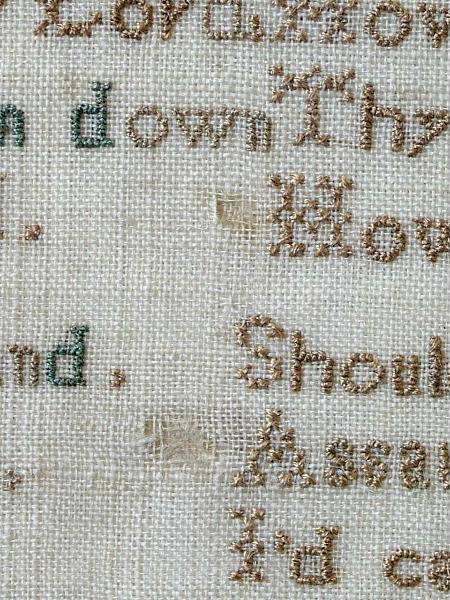 Lord How
n down Thy
. How
nd. Shoul
. Assau
I'd ca